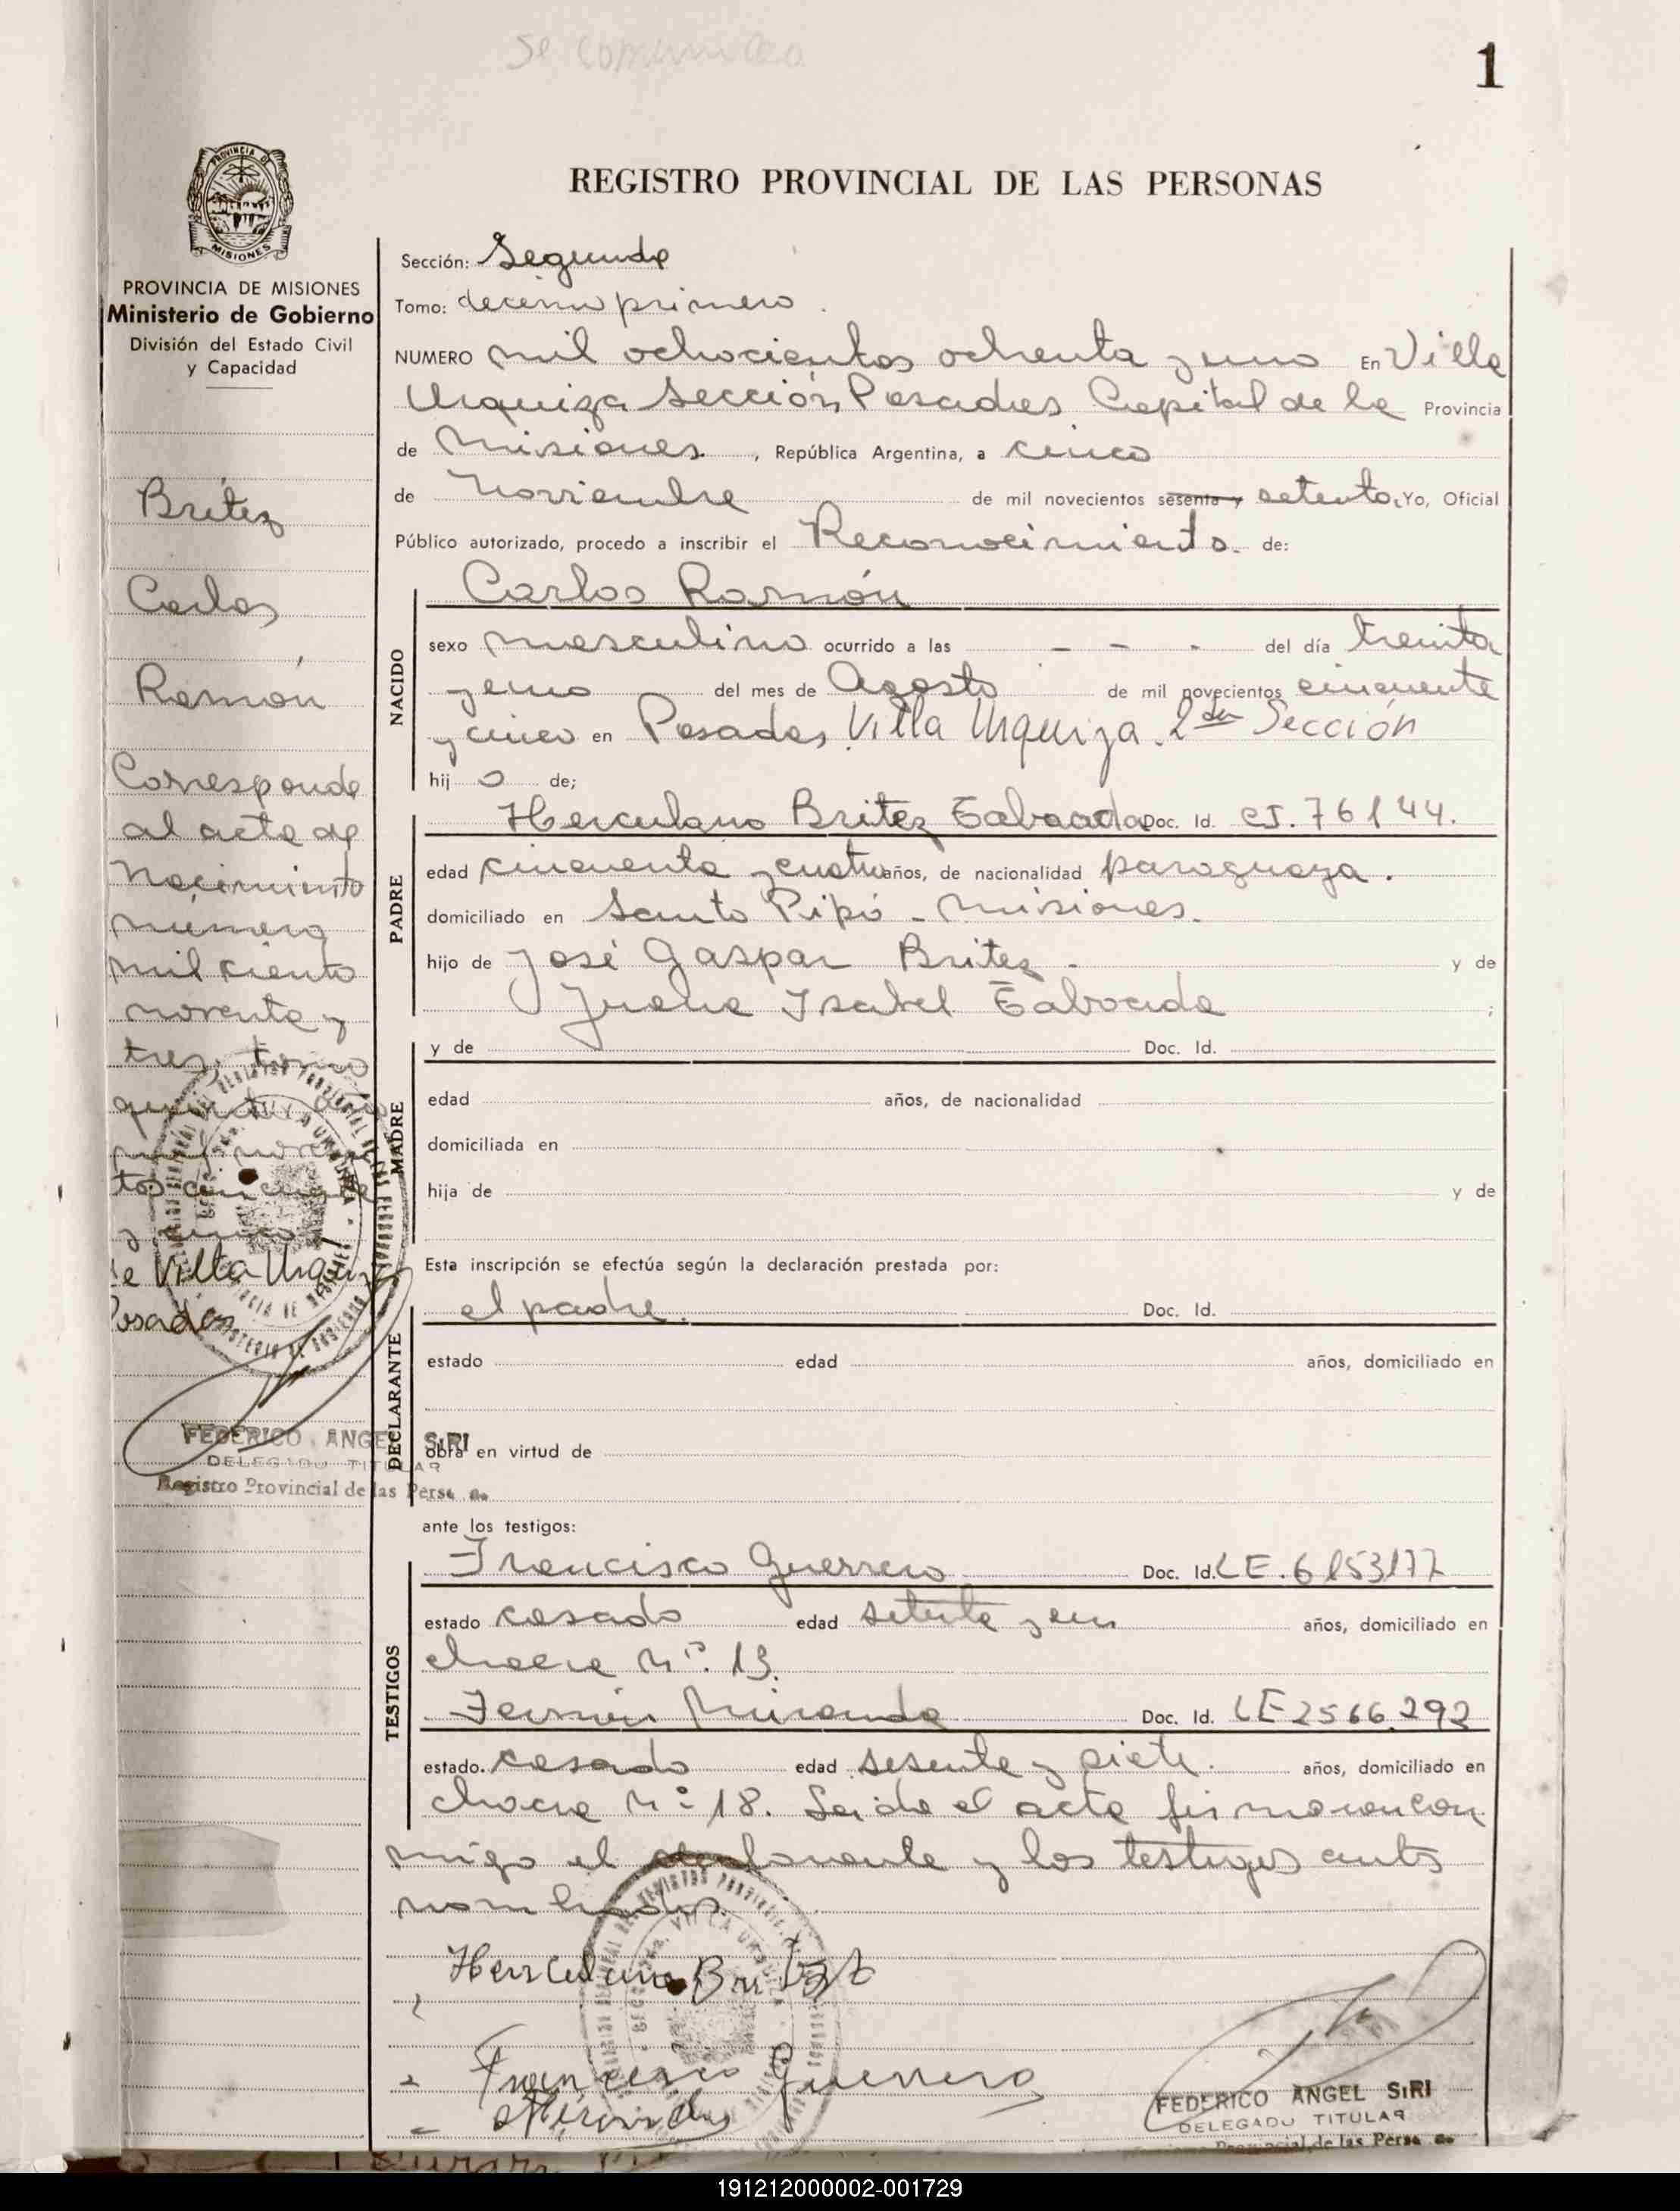 Se comunico
1
PROVINCIA DE MISIONES
Ministerio de Gobierno
División del Estado Civil
y Capacidad
Britez
Carlos
Ramón
Corresponde
al acta de
Nacimiento
número
mil ciento
noventa y
tres, tomo
quinto, año
mil novecien
tos cincuenta
y cinco
de Villa Urquiza
Posadas
FEDERICO ANGEL SIRI
DELEGADO TITULAR
Registro Provincial de las Personas
REGISTRO PROVINCIAL DE LAS PERSONAS
Sección: Segunda
Tomo: decimo primero
NUMERO mil ochocientos ochenta y uno En Villa
Urquiza Sección Posadas Capital de la Provincia
de Misiones, República Argentina, a cinco
de Noviembre de mil novecientos sesenta y setenta, Yo, Oficial
Público autorizado, procedo a inscribir el Reconocimiento de:
NACIDO
Carlos Ramón
sexo masculino ocurrido a las - - - del día treinta
y uno del mes de Agosto de mil novecientos cincuenta
y cinco en Posadas, Villa Urquiza. 2da Sección
hij o de;
PADRE
Herculano Britez Taboada Doc. Id. CI. 76144.
edad cincuenta y cuatro años, de nacionalidad paraguaya.
domiciliado en Santo Pipó - Misiones.
hijo de José Gaspar Britez - y de
Juana Isabel Taboada ;
MADRE
y de Doc. Id.
edad años, de nacionalidad
domiciliada en
hija de y de
Esta inscripción se efectúa según la declaración prestada por:
DECLARANTE
el padre. Doc. Id.
estado edad años, domiciliado en
obra en virtud de
ante los testigos:
TESTIGOS
Francisco Guerrero Doc. Id. LE. 6153177
estado casado edad setenta y un años, domiciliado en
chacra Nº. 13.
Fermín Miranda Doc. Id. LE 2566.292
estado. casado edad sesenta y siete. años, domiciliado en
chacra Nº 18. Leida el acta firmaron con
migo el declarante y los testigos antes
nombrados.
Herculano Britez
Francisco Guerrero
Miranda
FEDERICO ANGEL SIRI
DELEGADO TITULAR
Provincial de las Perso
191212000002-001729